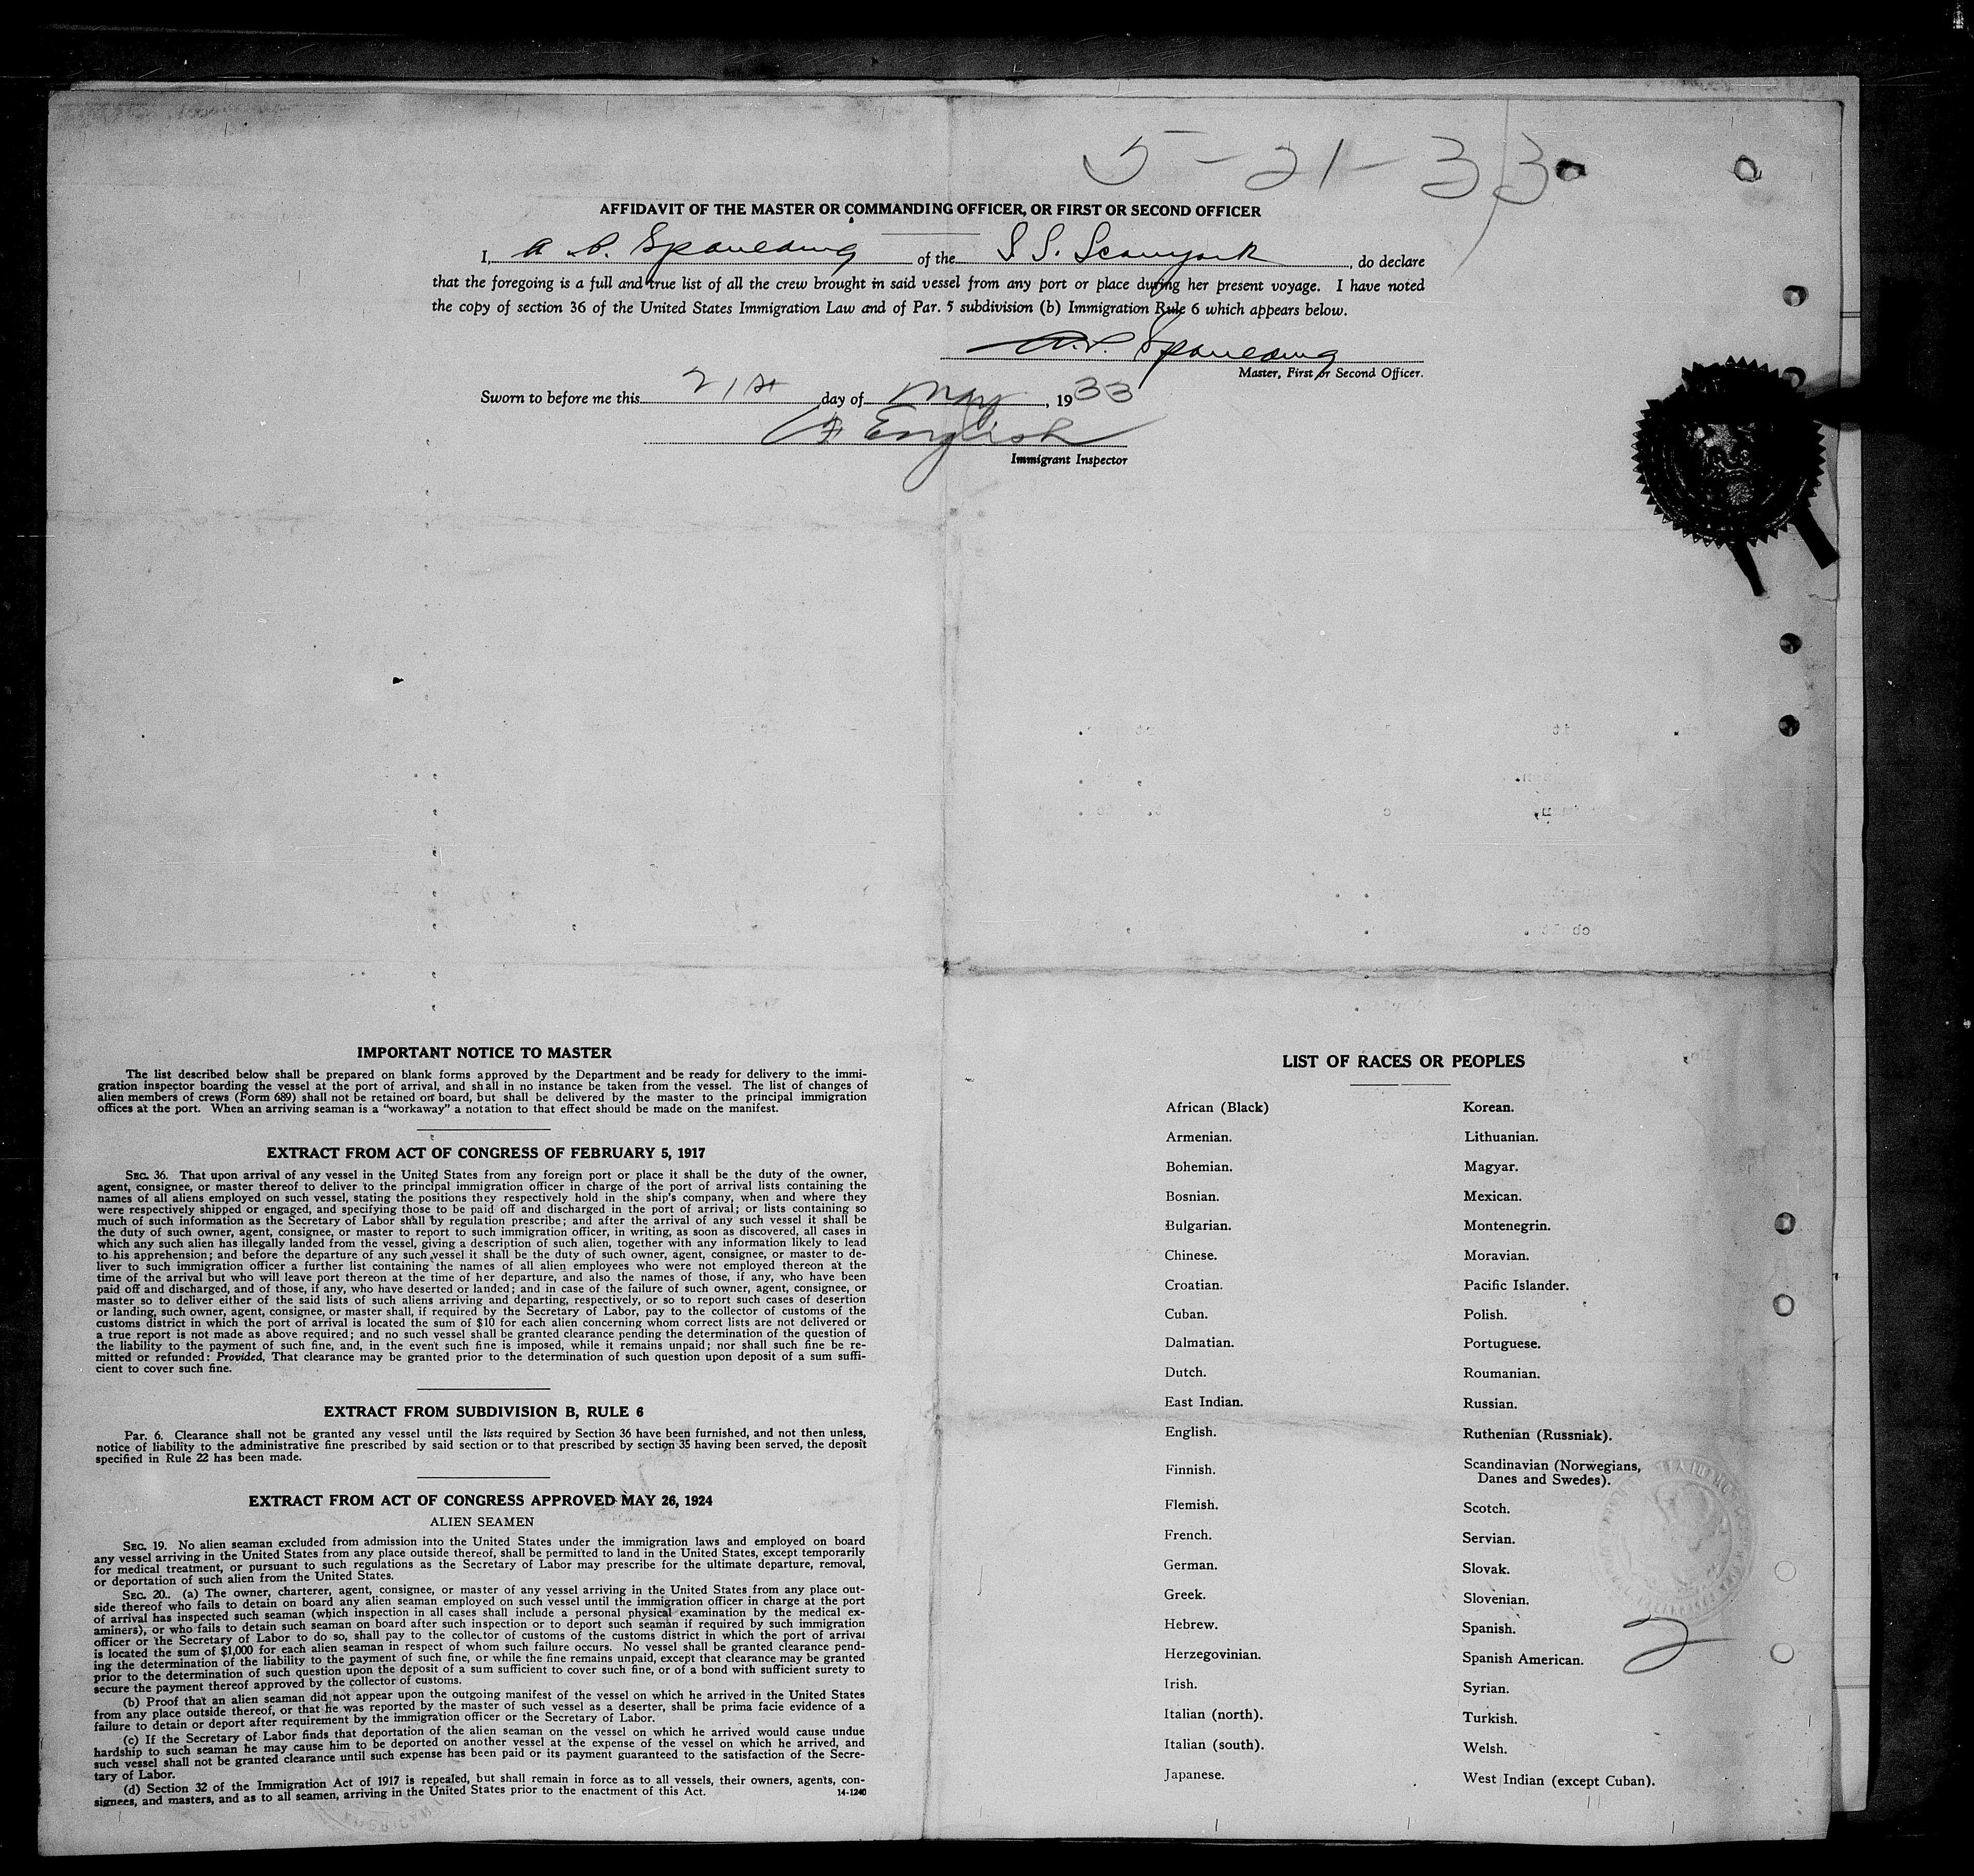 5-21-33
AFFIDAVIT OF THE MASTER OR COMMANDING OFFICER, OR FIRST OR SECOND OFFICER
I, A. P. Spaulding of the S S. Scanyork, do declare
that the foregoing is a full and true list of all the crew brought in said vessel from any port or place during her present voyage. I have noted
the copy of section 36 of the United States Immigration Law and of Par. 5 subdivision (b) Immigration Rule 6 which appears below.
A. P. Spaulding
Master, First or Second Officer.
Sworn to before me this 21st day of May, 1933
English
Immigrant Inspector
IMPORTANT NOTICE TO MASTER
The list described below shall be prepared on blank forms approved by the Department and be ready for delivery to the immi-
gration inspector boarding the vessel at the port of arrival, and shall in no instance be taken from the vessel. The list of changes of
alien members of crews (Form 689) shall not be retained on board, but shall be delivered by the master to the principal immigration
offices at the port. When an arriving seaman is a "workaway" a notation to that effect should be made on the manifest.
EXTRACT FROM ACT OF CONGRESS OF FEBRUARY 5, 1917
SEC. 36. That upon arrival of any vessel in the United States from any foreign port or place it shall be the duty of the owner,
agent, consignee, or master thereof to deliver to the principal immigration officer in charge of the port of arrival lists containing the
names of all aliens employed on such vessel, stating the positions they respectively hold in the ship's company, when and where they
were respectively shipped or engaged, and specifying those to be paid off and discharged in the port of arrival; or lists containing so
much of such information as the Secretary of Labor shall by regulation prescribe; and after the arrival of any such vessel it shall be
the duty of such owner, agent, consignee, or master to report to such immigration officer, in writing, as soon as discovered, all cases in
which any such alien has illegally landed from the vessel, giving a description of such alien, together with any information likely to lead
to his apprehension; and before the departure of any such vessel it shall be the duty of such owner, agent, consignee, or master to de-
liver to such immigration officer a further list containing the names of all alien employees who were not employed thereon at the
time of the arrival but who will leave port thereon at the time of her departure, and also the names of those, if any, who have been
paid off and discharged, and of those, if any, who have deserted or landed; and in case of the failure of such owner, agent, consignee, or
master so to deliver either of the said lists of such aliens arriving and departing, respectively, or so to report such cases of desertion
or landing, such owner, agent, consignee, or master shall, if required by the Secretary of Labor, pay to the collector of customs of the
customs district in which the port of arrival is located the sum of $10 for each alien concerning whom correct lists are not delivered or
a true report is not made as above required; and no such vessel shall be granted clearance pending the determination of the question of
the liability to the payment of such fine, and, in the event such fine is imposed, while it remains unpaid; nor shall such fine be re-
mitted or refunded: Provided, That clearance may be granted prior to the determination of such question upon deposit of a sum suffi-
cient to cover such fine.
EXTRACT FROM SUBDIVISION B, RULE 6
Par. 6. Clearance shall not be granted any vessel until the lists required by Section 36 have been furnished, and not then unless,
notice of liability to the administrative fine prescribed by said section or to that prescribed by section 35 having been served, the deposit
specified in Rule 22 has been made.
EXTRACT FROM ACT OF CONGRESS APPROVED MAY 26, 1924
ALIEN SEAMEN
SEC. 19. No alien seaman excluded from admission into the United States under the immigration laws and employed on board
any vessel arriving in the United States from any place outside thereof, shall be permitted to land in the United States, except temporarily
for medical treatment, or pursuant to such regulations as the Secretary of Labor may prescribe for the ultimate departure, removal,
or deportation of such alien from the United States.
SEC. 20.. (a) The owner, charterer, agent, consignee, or master of any vessel arriving in the United States from any place out-
side thereof who fails to detain on board any alien seaman employed on such vessel until the immigration officer in charge at the port
of arrival has inspected such seaman (which inspection in all cases shall include a personal physical examination by the medical ex-
aminers), or who fails to detain such seaman on board after such inspection or to deport such seaman if required by such immigration
officer or the Secretary of Labor to do so, shall pay to the collector of customs of the customs district in which the port of arrival
is located the sum of $1,000 for each alien seaman in respect of whom such failure occurs. No vessel shall be granted clearance pend-
ing the determination of the liability to the payment of such fine, or while the fine remains unpaid, except that clearance may be granted
prior to the determination of such question upon the deposit of a sum sufficient to cover such fine, or of a bond with sufficient surety to
secure the payment thereof approved by the collector of customs.
(b) Proof that an alien seaman did not appear upon the outgoing manifest of the vessel on which he arrived in the United States
from any place outside thereof, or that he was reported by the master of such vessel as a deserter, shall be prima facie evidence of a
failure to detain or deport after requirement by the immigration officer or the Secretary of Labor.
(c) If the Secretary of Labor finds that deportation of the alien seaman on the vessel on which he arrived would cause undue
hardship to such seaman he may cause him to be deported on another vessel at the expense of the vessel on which he arrived, and
such vessel shall not be granted clearance until such expense has been paid or its payment guaranteed to the satisfaction of the Secre-
tary of Labor.
(d) Section 32 of the Immigration Act of 1917 is repealed, but shall remain in force as to all vessels, their owners, agents, con-
signees, and masters, and as to all seamen, arriving in the United States prior to the enactment of this Act. 14-1240
LIST OF RACES OR PEOPLES
African (Black)
Armenian.
Bohemian.
Bosnian.
Bulgarian.
Chinese.
Croatian.
Cuban.
Dalmatian.
Dutch.
East Indian.
English.
Finnish.
Flemish.
French.
German.
Greek.
Hebrew.
Herzegovinian.
Irish.
Italian (north).
Italian (south).
Japanese.
Korean.
Lithuanian.
Magyar.
Mexican.
Montenegrin.
Moravian.
Pacific Islander.
Polish.
Portuguese.
Roumanian.
Russian.
Ruthenian (Russniak).
Scandinavian (Norwegians,
Danes and Swedes).
Scotch.
Servian.
Slovak.
Slovenian.
Spanish.
Spanish American.
Syrian.
Turkish.
Welsh.
West Indian (except Cuban).
2